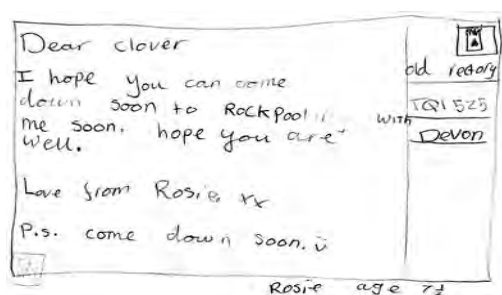 Dear clover
I hope you can come
down soon to Rockpool with
me soon. hope you are
well.
Love from Rosie xx
P.s. come down soon. ü
old rectory
TQ1 525
Devon
Rosie age 7½